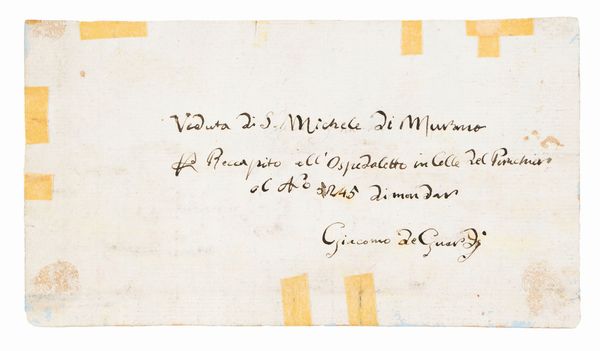 Veduta di S. Michele di Murano
Recapito all'Ospedaletto in Calle del Peruchier
al No 5245 dimandar
Giacomo de Guardj